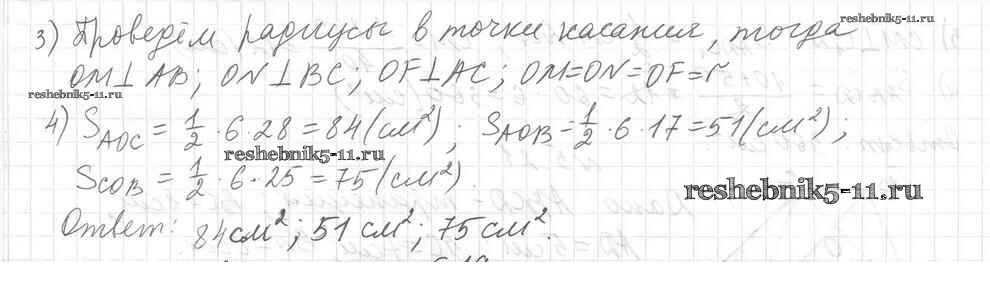 reshebnik5-11.ru
3) Проведём радиусы в точки касания, тогда
OM⊥AB; ON⊥BC; OF⊥AC; OM=ON=OF=r
reshebnik5-11.ru
4) S_AOC = 1/2 · 6 · 28 = 84 (см²); S_AOB = 1/2 · 6 · 17 = 51 (см²);
reshebnik5-11.ru
S_COB = 1/2 · 6 · 25 = 75 (см²)
reshebnik5-11.ru
Ответ: 84 см²; 51 см²; 75 см².